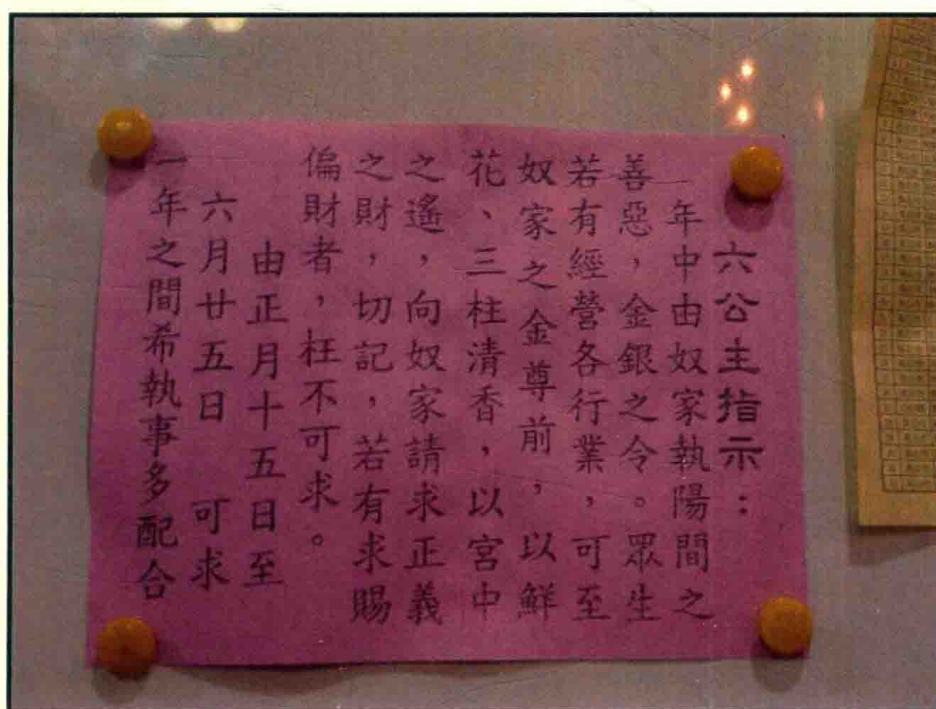 六公主指示：
一年中由奴家執陽間之
善惡，金銀之令。眾生
若有經營各行業，可至
奴家之金尊前，以鮮
花、三柱清香，以宮中
之遙，向奴家請求正義
之財，切記，若有求賜
偏財者，枉不可求。
由正月十五日至
六月廿五日　可求
一年之間希執事多配合